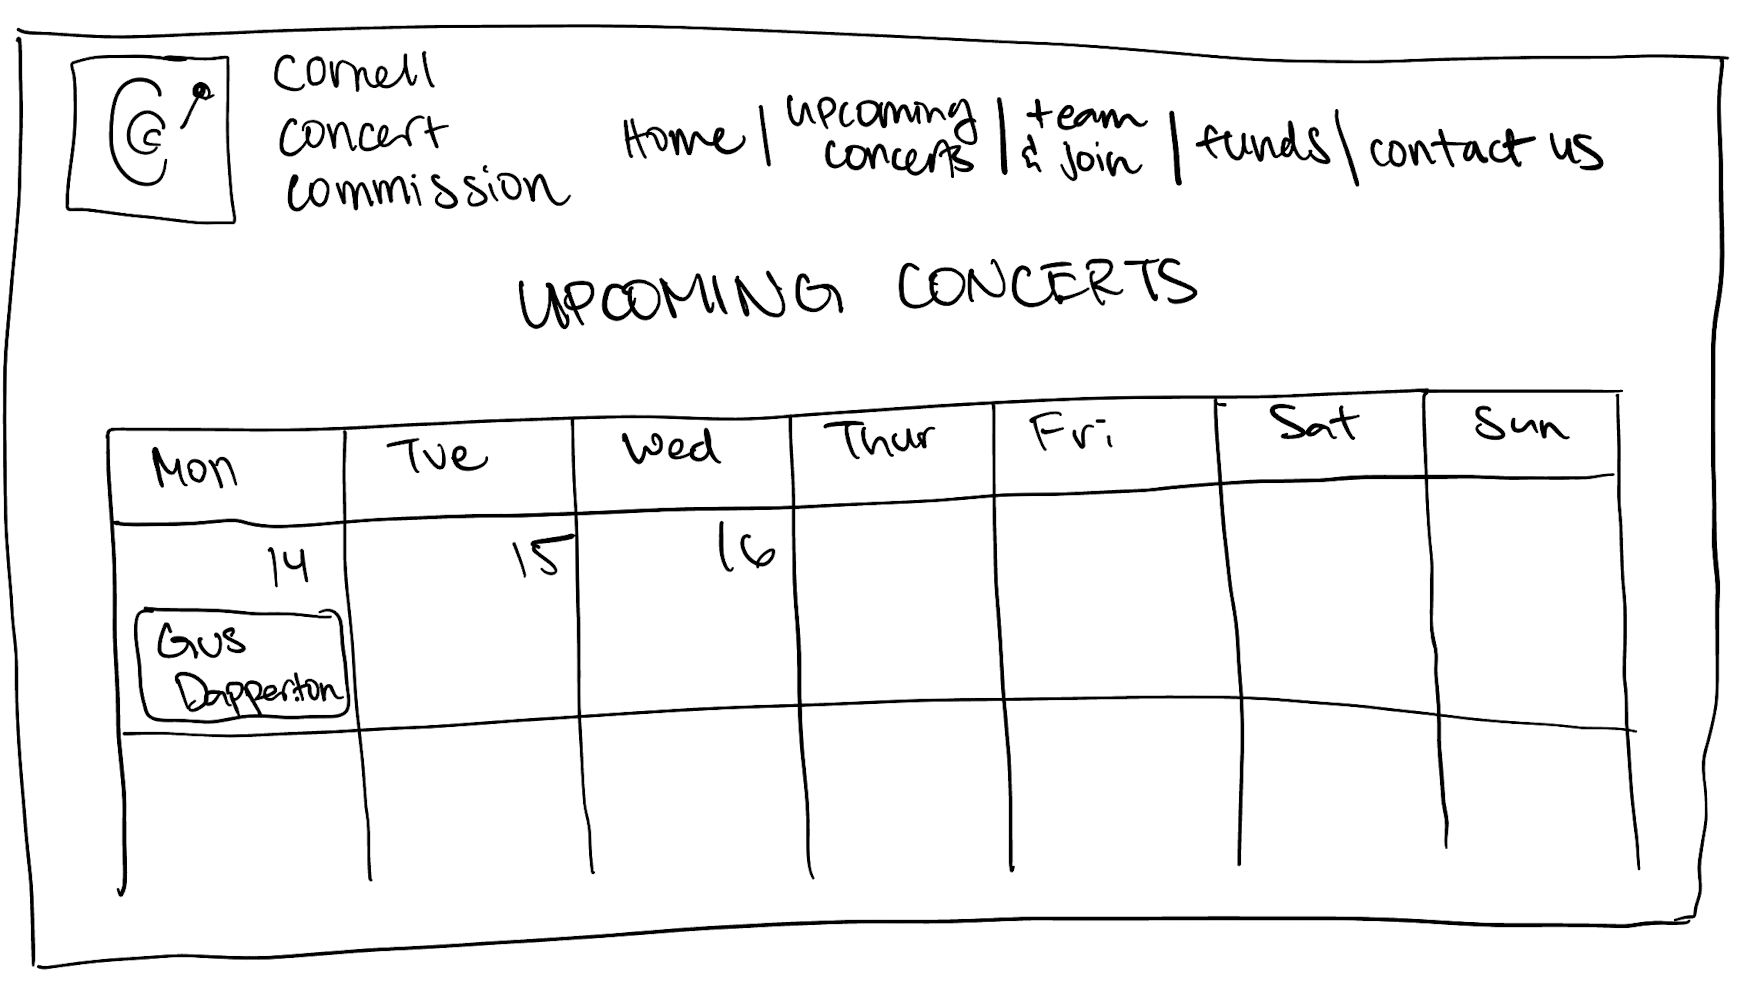 CCC
Cornell
concert
commission
Home | upcoming concerts | team & join | funds | contact us
UPCOMING CONCERTS
Mon Tue Wed Thur Fri Sat Sun
14 15 16
Gus
Dapperton